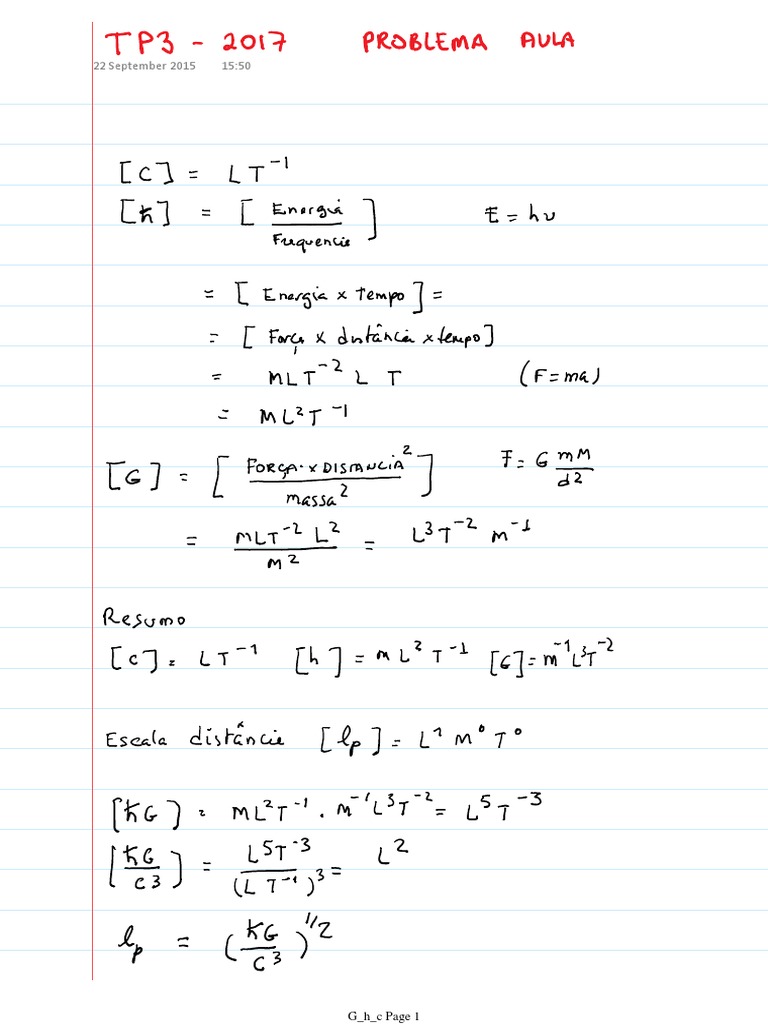 TP3 - 2017 PROBLEMA AULA
22 September 2015 15:50
[C] = L T⁻¹
[ħ] = [Energia / Frequencia] E = hν
= [Energia x Tempo] =
= [Força x distância x tempo]
= MLT⁻² L T (F=ma)
= ML²T⁻¹
[G] = [FORÇA x DISTANCIA² / massa²] F = G mM / d²
= MLT⁻² L² / M² = L³T⁻² M⁻¹
Resumo
[C] = LT⁻¹ [h] = ML²T⁻¹ [G] = M⁻¹L³T⁻²
Escala distância [lₚ] = L¹ M⁰ T⁰
[ħG] = ML²T⁻¹ . M⁻¹L³T⁻² = L⁵T⁻³
[ħG / C³] = L⁵T⁻³ / (LT⁻¹)³ = L²
lₚ = (ħG / C³)^1/2
G_h_c Page 1